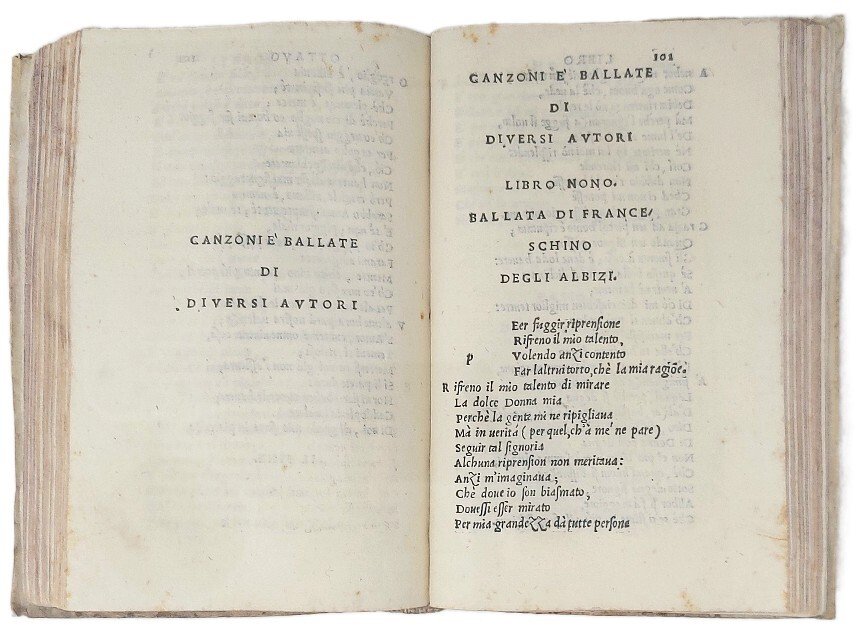 CANZONI E' BALLATE
DI
DIVERSI AVTORI
101
CANZONI E' BALLATE
DI
DIVERSI AVTORI
LIBRO NONO.
BALLATA DI FRANCE/
SCHINO
DEGLI ALBIZI.
Eer fuggir riprensione
Rifreno il mio talento,
p Volendo anzi contento
Far l'altrui torto, chè la mia ragiõe.
R ifreno il mio talento di mirare
La dolce Donna mia
Perchè la gente mi ne ripigliaua
Mà in uerità (per quel, ch'à me' ne pare)
Seguir tal signoria
Alchuna riprension non meritaua:
Anzi m'imaginaua;
Chè doue io son biasmato,
Douessi esser mirato
Per mia grandezza dà tutte persona